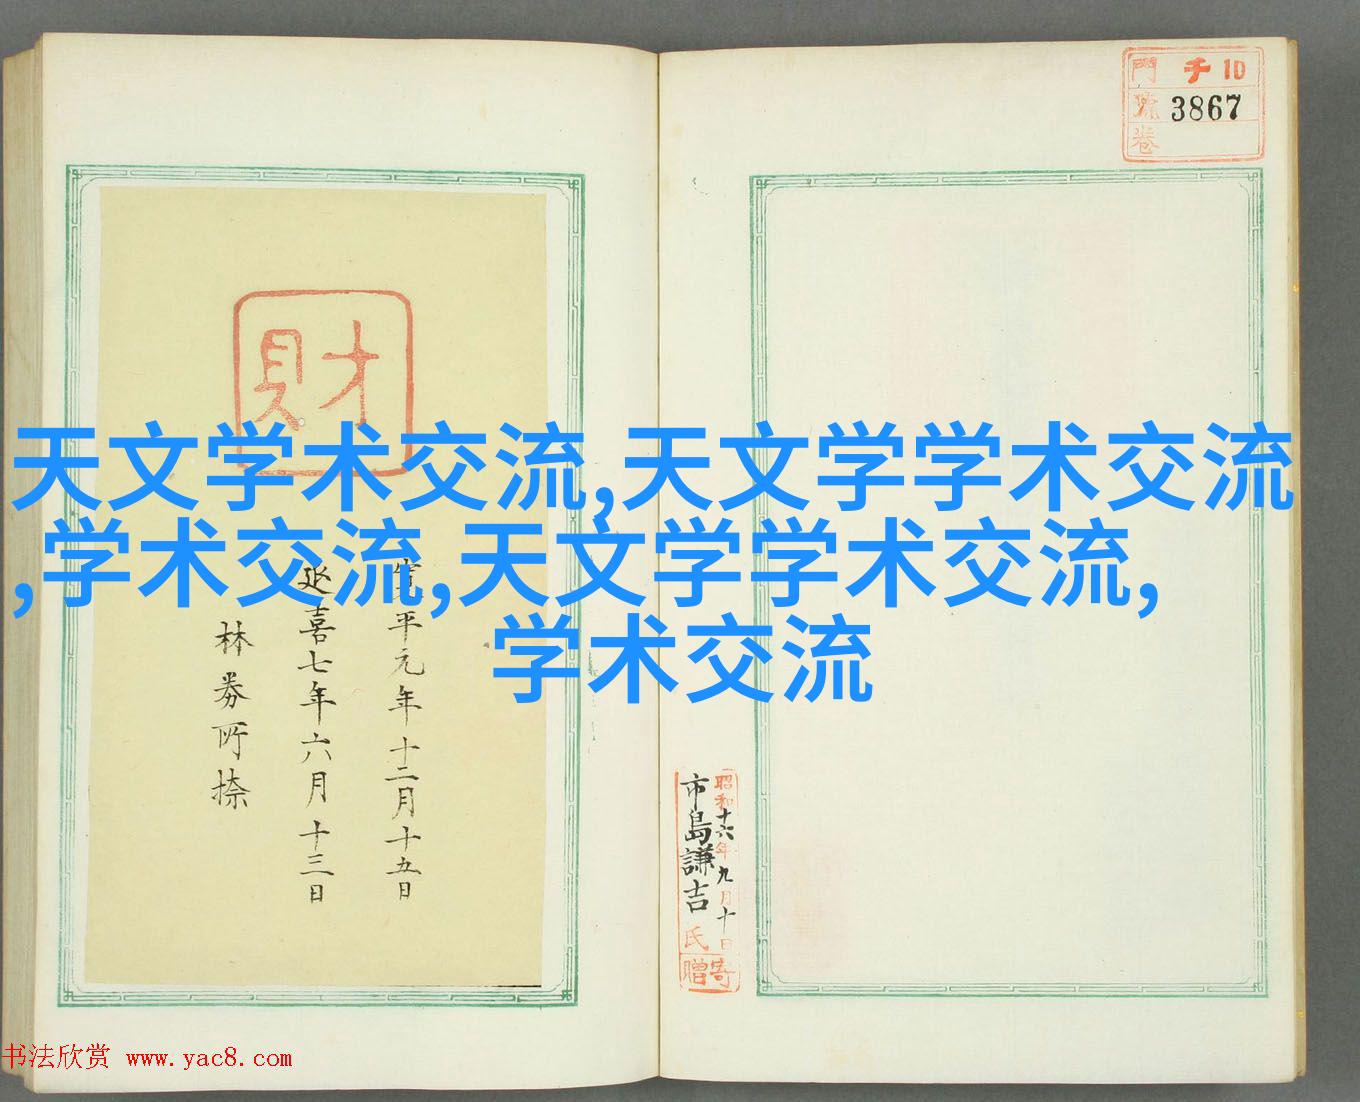 門 チ 10
號 3867
卷
財
天文学术交流,天文学学术交流
,学术交流,天文学学术交流,
学术交流
平元年十二月十五日
延喜七年六月十三日
林券所捺
昭和十六年九月十日
市島謙吉氏寄贈
书法欣赏 www.yac8.com